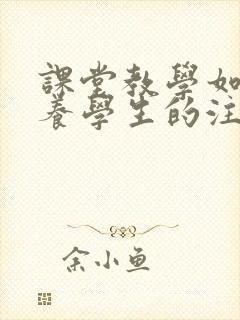 課堂教學如
養學生的注
余小魚